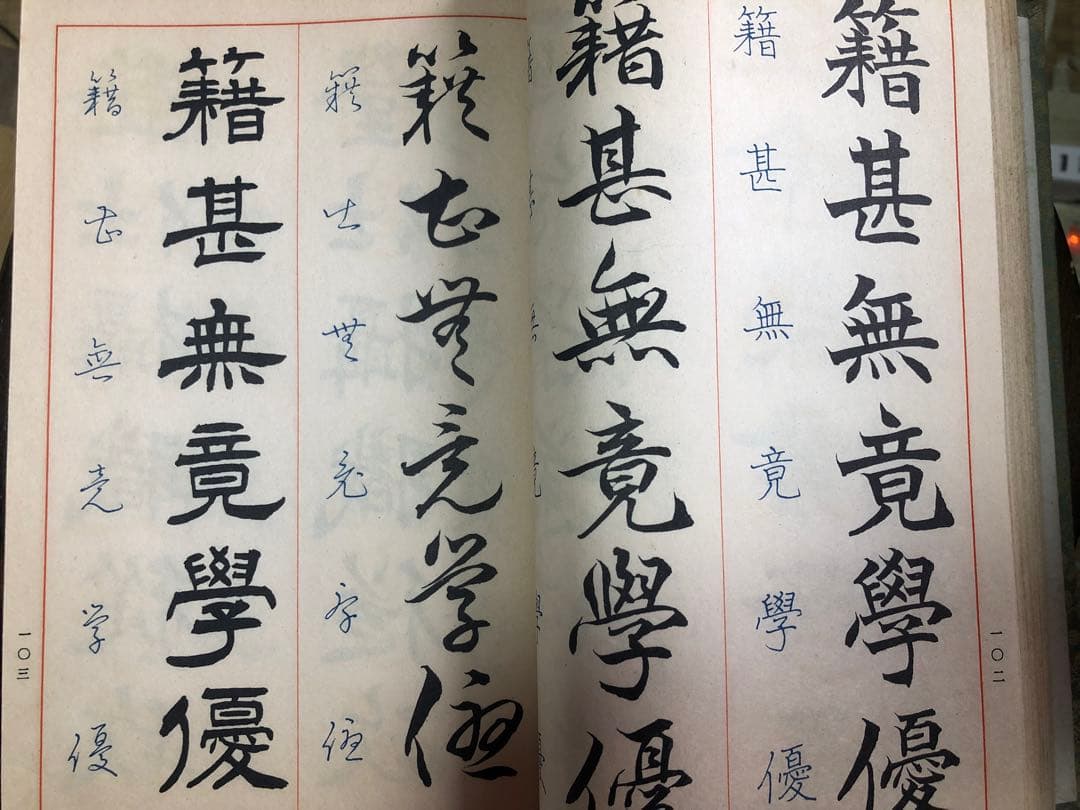 一〇二
籍甚無竟學優
籍甚無竟學優
籍甚無竟學優
籍甚無竟學優
籍甚無竟學優
籍甚無竟學優
籍甚無竟學優
一〇三